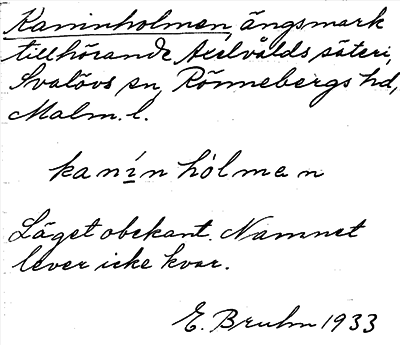 Kaninholmen, ängsmark
tillhörande Axelvålds säteri,
Svalövs sn, Rönnebergs hd,
Malm. l.
kanín hòlmen
Läget obekant. Namnet
lever icke kvar.
E. Bruhn 1933